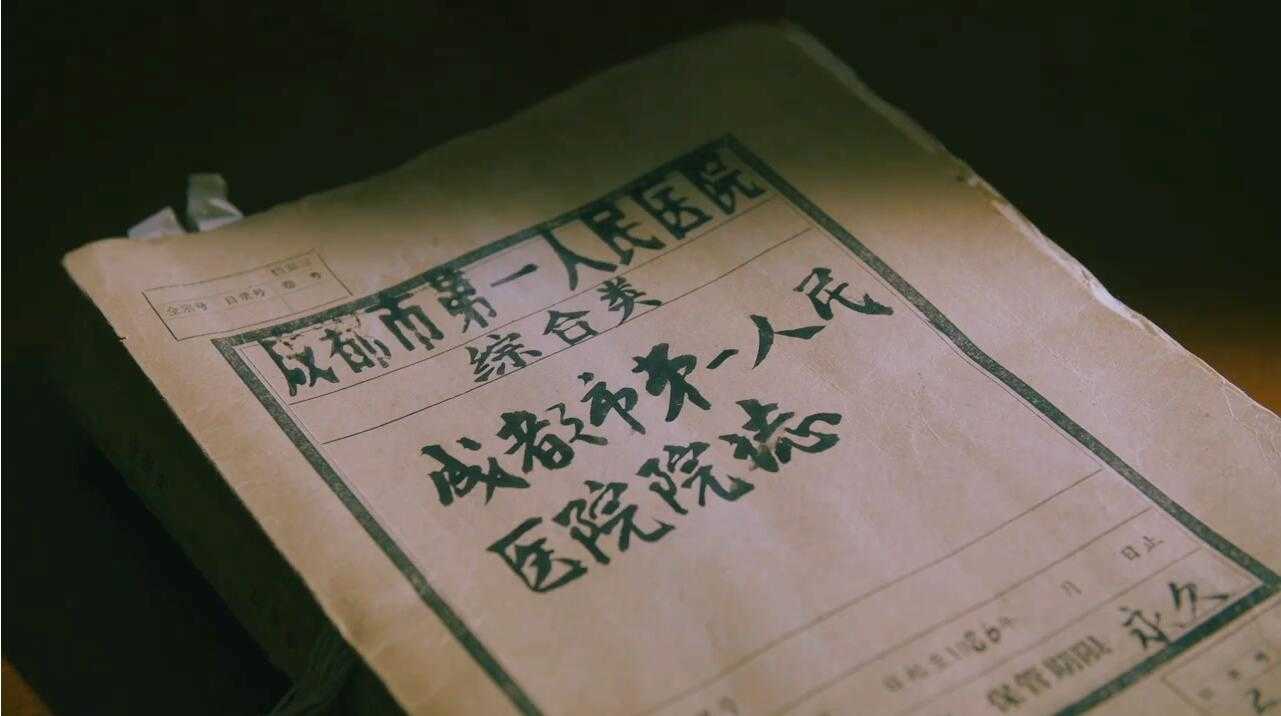 全宗号 目录号
卷号
成都市第一人民医院
综合类
成都市第一人民
医院院誌
日起至1986年 月 日止
保管期限 永久